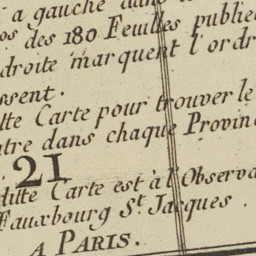 a gauche dans
des 180 Feuilles publie
droite marquent l'ordr
ssent.
tte Carte pour trouver le
ntre dans chaque Provin
21
ditte Carte est à l'Observa
Fauxbourg St. Jacques.
A PARIS.